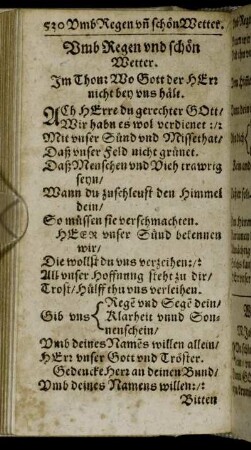 520 Vmb Regen vñ schön Wetter.
Vmb Regen vnd schön
Wetter.
Im Thon: Wo Gott der HErr
nicht bey vns hält.
ACh HErre du gerechter GOtt/
Wir habn es wol verdienet :/:
Mit vnser Sünd vnd Missethat/
Daß vnser Feld nicht grünet.
Daß Menschen vnd Vieh trawrig
seyn/
Wann du zuschleust den Himmel
dein/
So müssen sie verschmachten.
HERR vnser Sünd bekennen
wir/
Die wollst du vns verzeihen:/:
All vnser Hoffnung steht zu dir/
Trost/ Hülff thu vns verleihen.
Regē vnd Segē dein/
Gib vns Klarheit vnnd Son-
nenschein/
Vmb deines Namēs willen allein/
HErr vnser Gott vnd Tröster.
Gedencke Herr an deinen Bund/
Vmb deines Namens willen:/:
Bitten